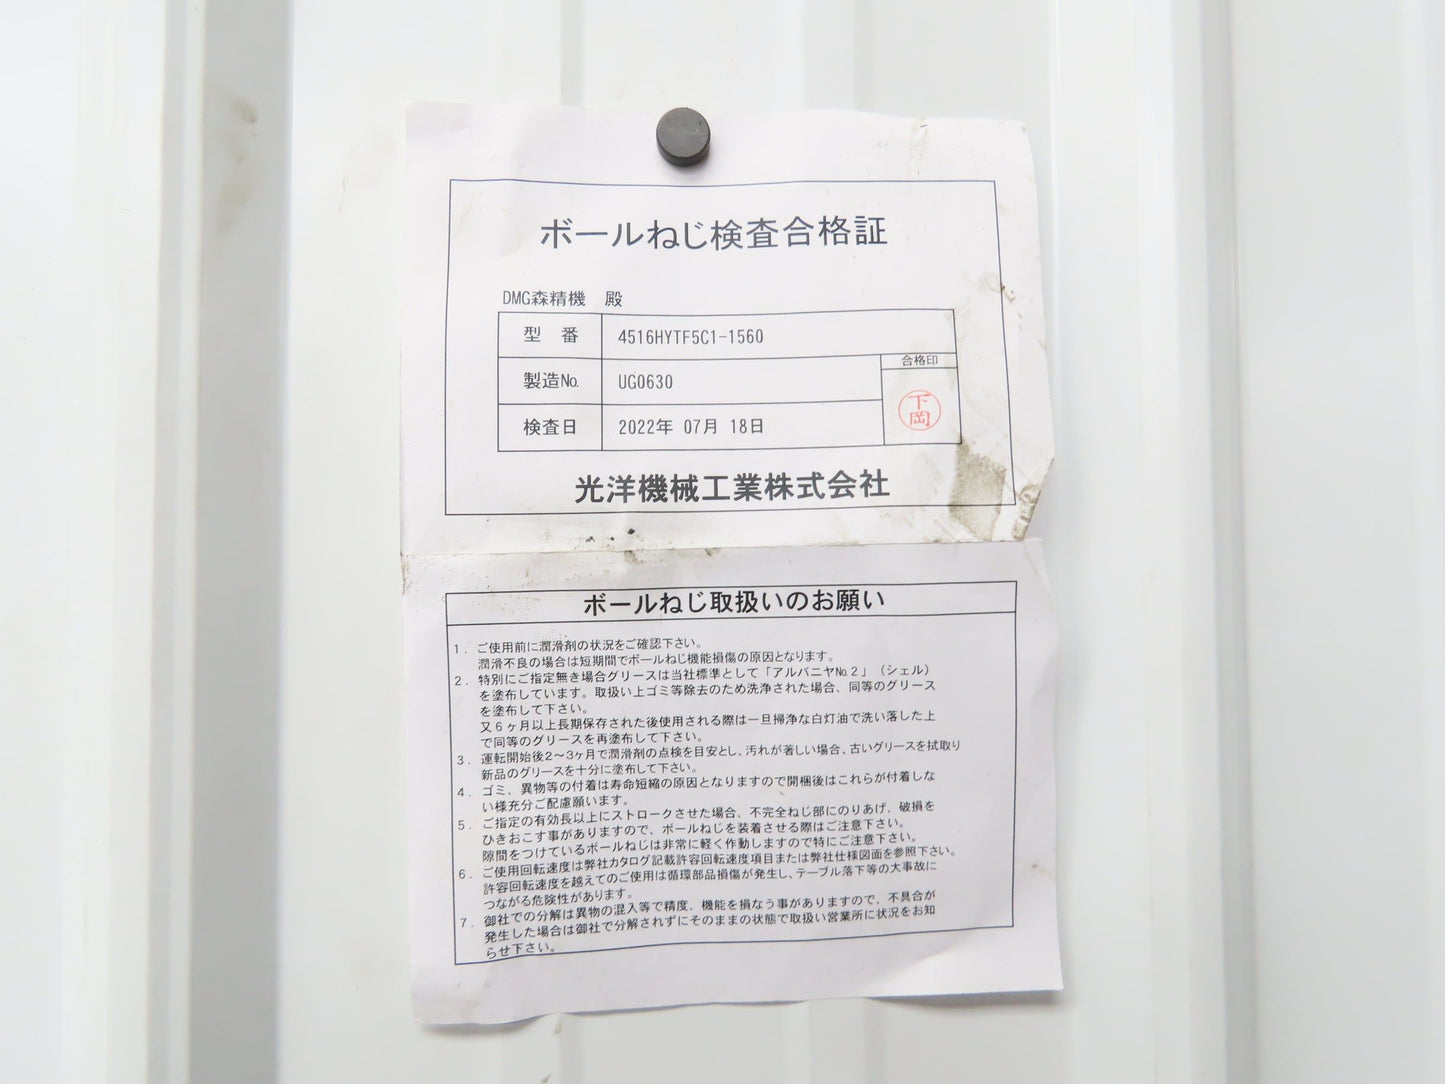 ボールねじ検査合格証
DMG森精機　殿
型　番　4516HYTF5C1-1560
合格印
製造No.　UG0630
下岡
検査日　2022年 07月 18日
光洋機械工業株式会社
ボールねじ取扱いのお願い
1．ご使用前に潤滑剤の状況をご確認下さい。
潤滑不良の場合は短期間でボールねじ機能損傷の原因となります。
2．特別にご指定無き場合グリースは当社標準として「アルバニヤNo.2」（シェル）
を塗布しています。取扱い上ゴミ等除去のため洗浄された場合、同等のグリース
を塗布して下さい。
又6ヶ月以上長期保存された後使用される際は一旦掃浄な白灯油で洗い落した上
で同等のグリースを再塗布して下さい。
3．運転開始後2～3ヶ月で潤滑剤の点検を目安とし、汚れが著しい場合、古いグリースを拭取り
新品のグリースを十分に塗布して下さい。
4．ゴミ、異物等の付着は寿命短縮の原因となりますので開梱後はこれらが付着しな
い様充分ご配慮願います。
5．ご指定の有効長以上にストロークさせた場合、不完全ねじ部にのりあげ、破損を
ひきおこす事がありますので、ボールねじを装着させる際はご注意下さい。
隙間をつけているボールねじは非常に軽く作動しますので特にご注意下さい。
6．ご使用回転速度は弊社カタログ記載許容回転速度項目または弊社仕様図面を参照下さい。
許容回転速度を越えてのご使用は循環部品損傷が発生し、テーブル落下等の大事故に
つながる危険性があります。
7．御社での分解は異物の混入等で精度、機能を損なう事がありますので、不具合が
発生した場合は御社で分解されずにそのままの状態で取扱い営業所に状況をお知
らせ下さい。